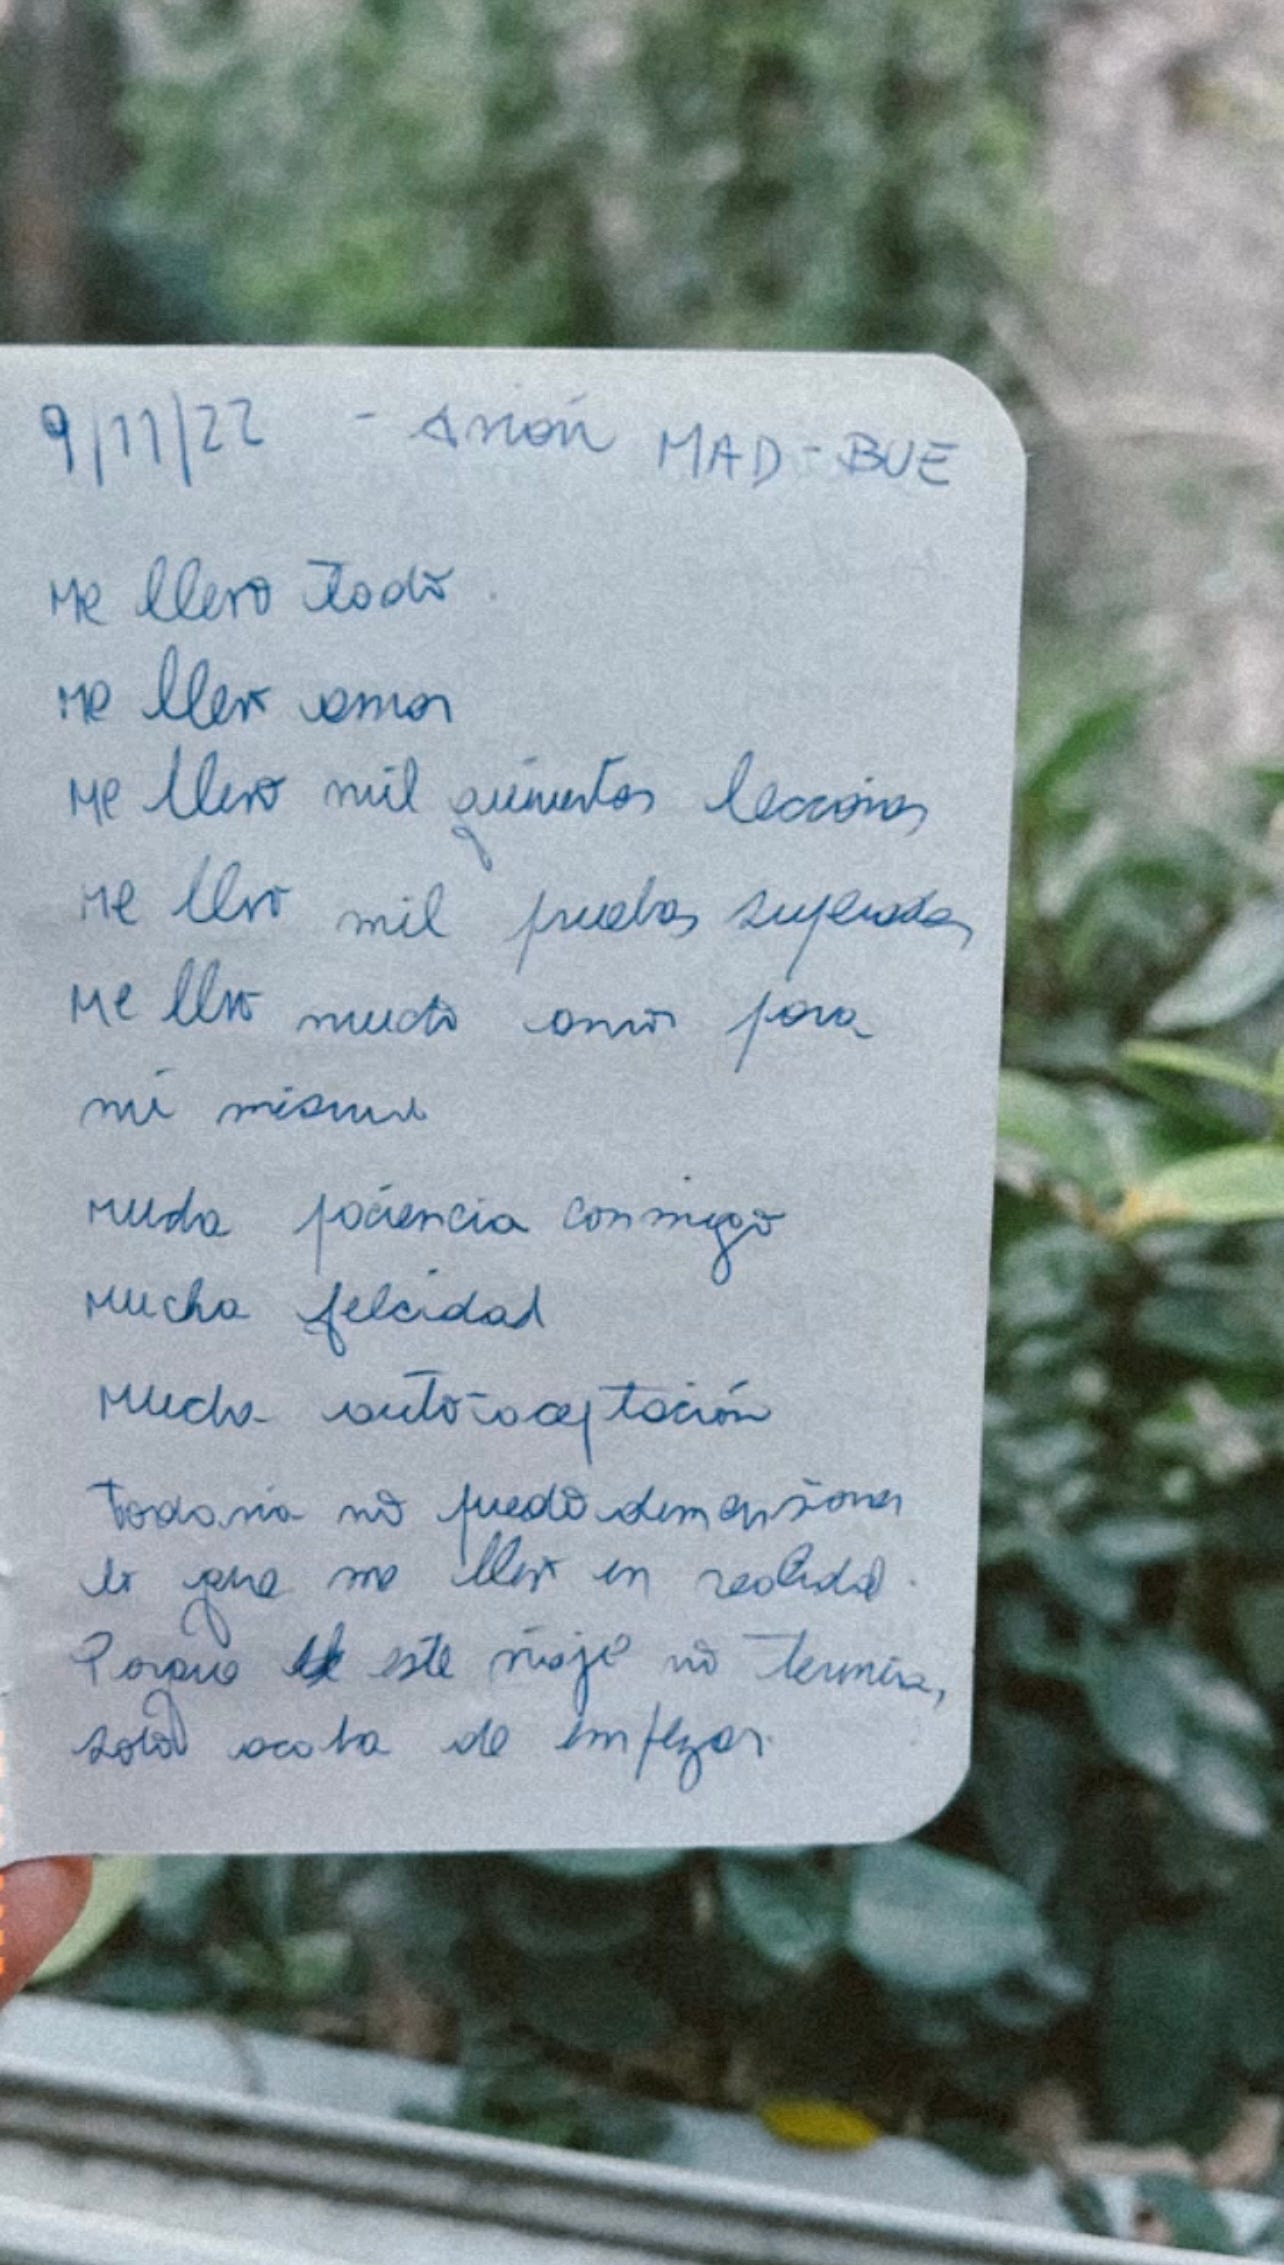 9/11/22 - Avión MAD-BUE
Me llevo todo.
Me llevo amor
Me llevo mil quinientas lecciones
Me llevo mil pruebas superadas
Me llevo mucho amor para
mí misma
Mucha paciencia conmigo
Mucha felicidad
Mucha auto-aceptación
Todavía no puedo dimensionar
lo que me llevo en realidad.
Porque este viaje no termina,
solo acaba de empezar.